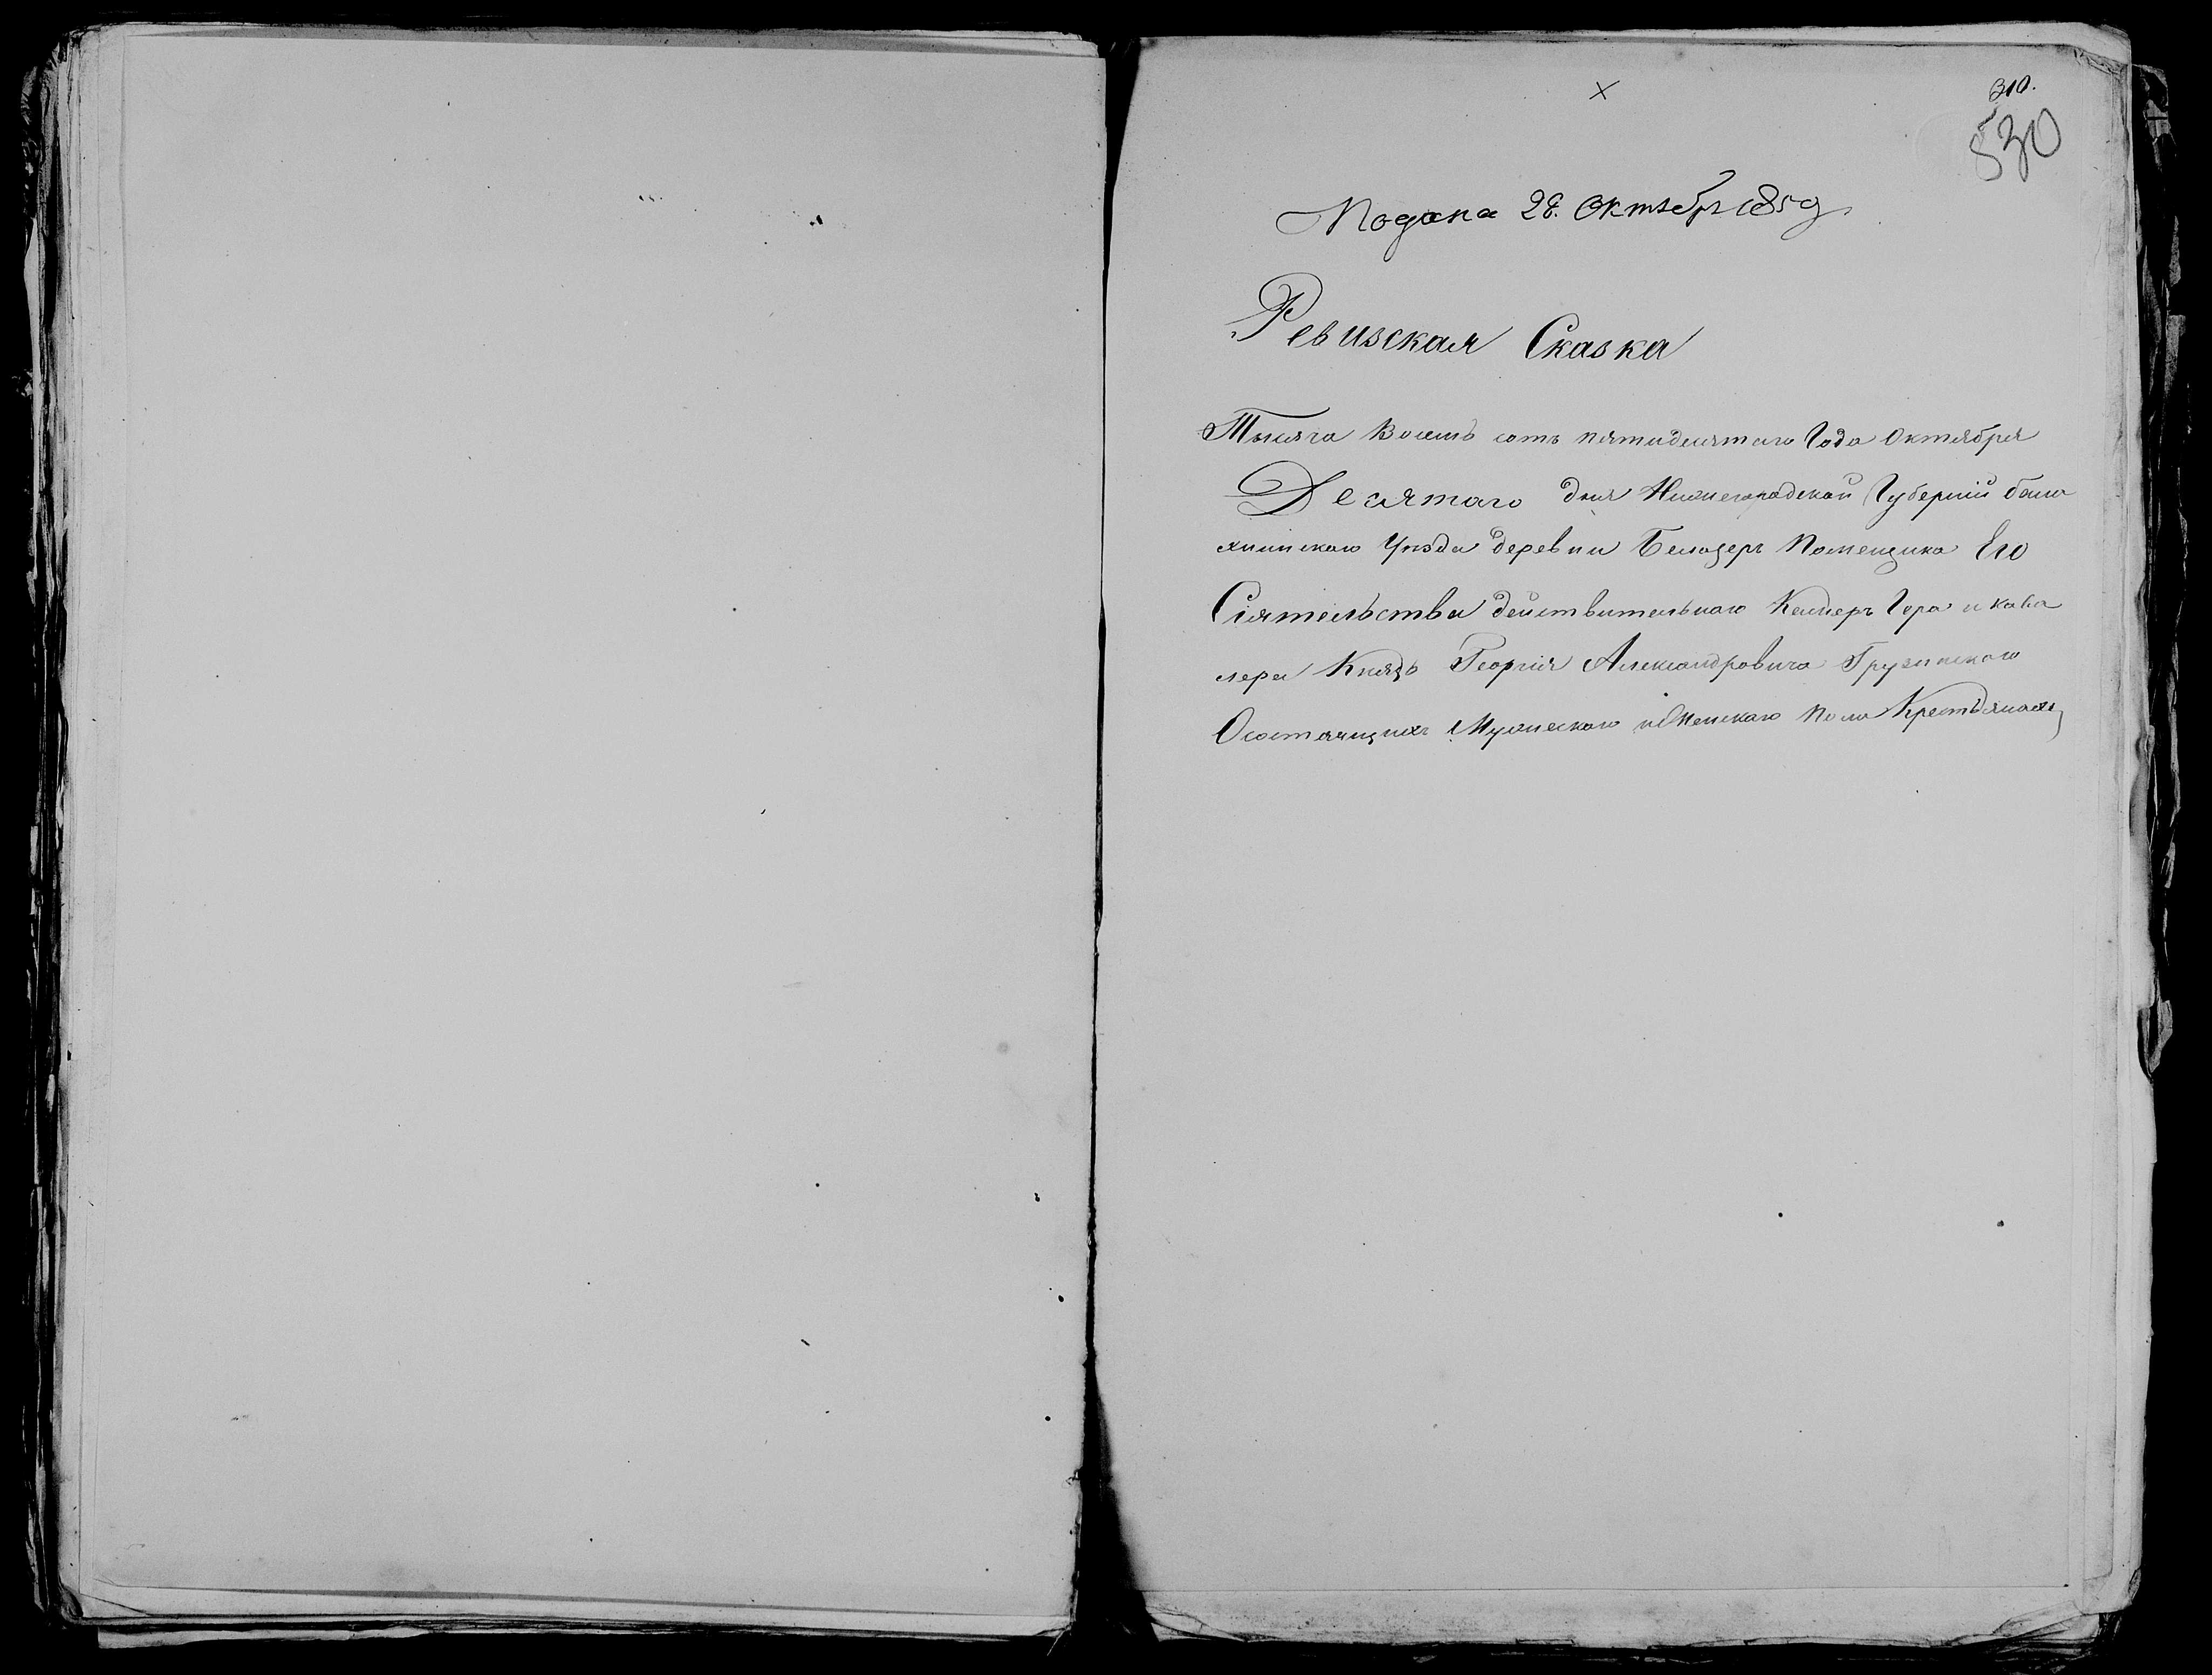 310.
530
Подана 28. Октебря 1850
Ревизская Сказка
Тысяча Восемь сотъ пятидесятаго Года Октября
Десятаго дня Нижегородской Губерній бала
хнинскаго Уезда деревни Помещика Его
Сіятельства действительнаго Камеръ Гера и кава
лера Князь Георгія Александровича Грузинскаго
Осостоящихъ Мужескаго и Женскаго Пола Крестьянахъ